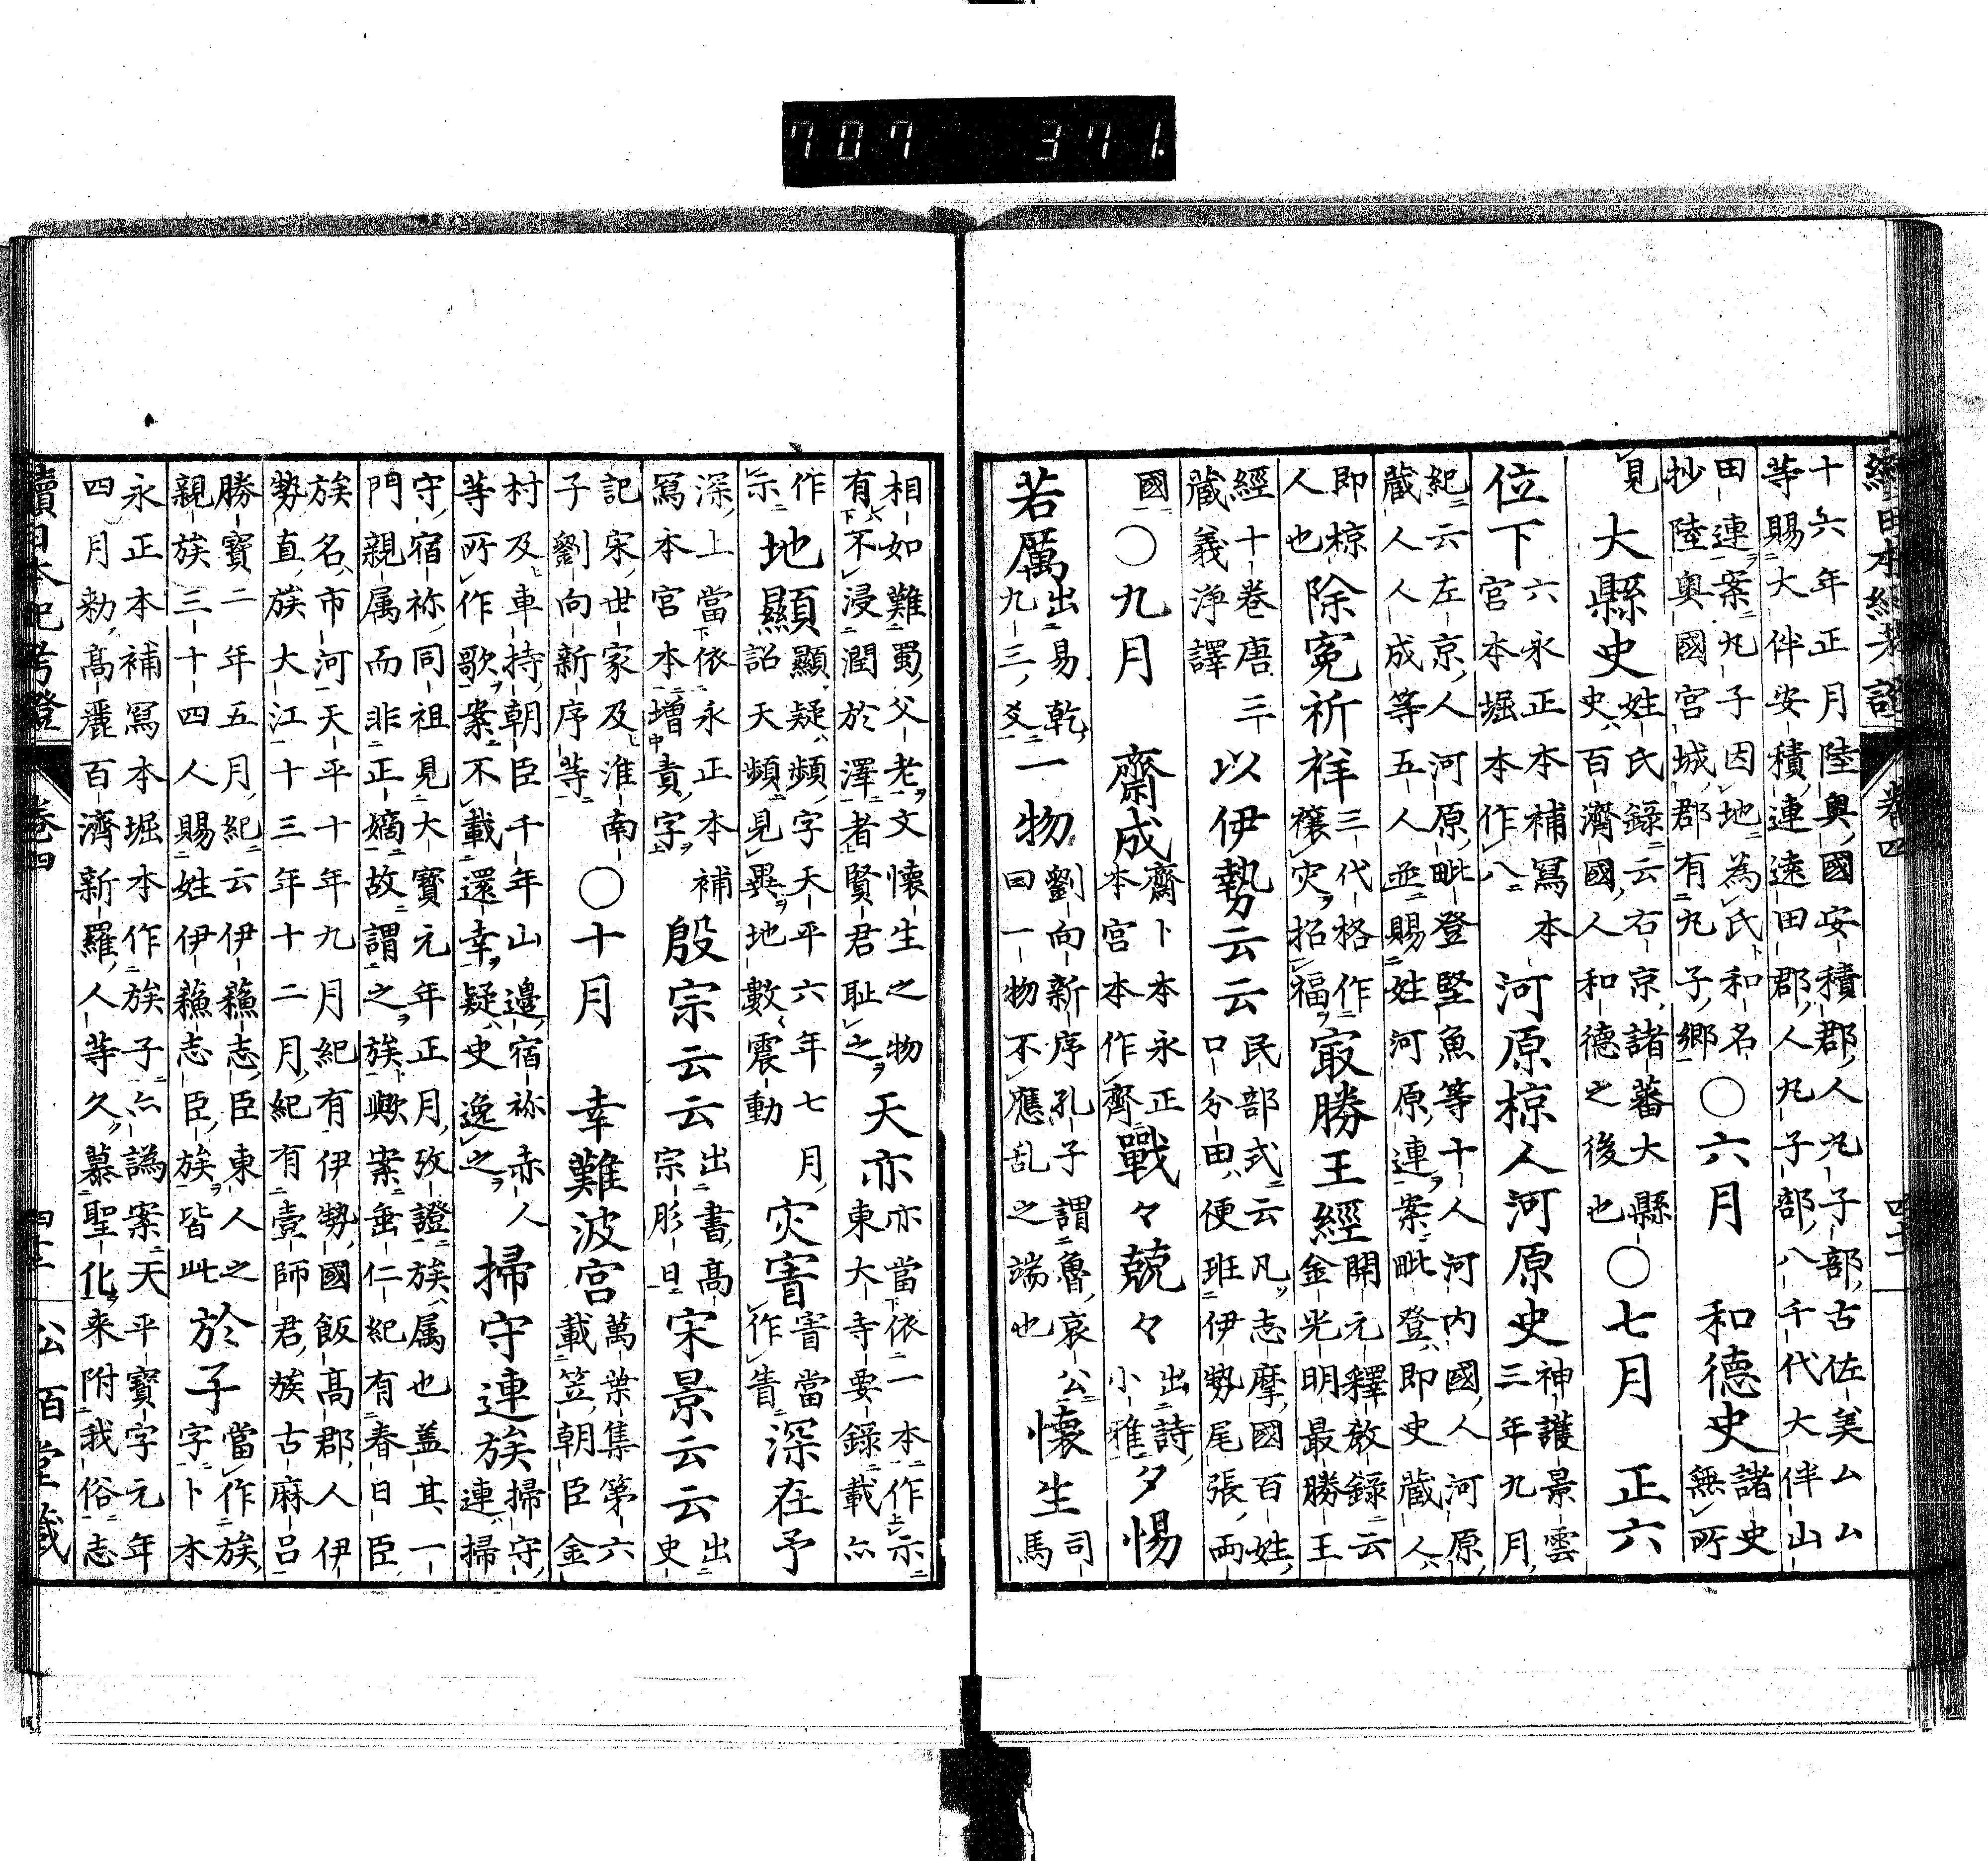 707 371
續日本紀考證 卷四 四十二
十六年正月陸奥國安積郡人丸子部古佐美厶厶
等賜大伴安積連遠田郡人丸子部八千代大伴山
田連案丸子因地為氏和名
抄陸奥國宮城郡有丸子鄉
〇六月 和德史
諸史
無所
見
大縣史
姓氏錄云右京諸蕃大縣
史百濟國人和德之後也
〇七月 正六
位下
六永正本補寫本
官本堀本作八
河原椋人河原史
神護景雲
三年九月
紀云左京人河原毗登堅魚等十人河内國人河原
藏人人成等五人並賜姓河原連案毗登即史藏人
即椋
人也
除寃祈祥
三代格作
禳灾招福
寂勝王經
開元釋教錄云
金光明最勝王
經十卷唐三
藏義淨譯
以伊勢云云
民部式云凡志摩國百姓
口分田便班伊勢尾張兩
國
〇九月 齋成
齋卜本永正
本宮本作齊
戰々兢々
出詩
小雅
夕惕
若厲
出易乾
九三爻
一物
劉向新序孔子謂魯哀公
曰一物不應乱之端也
懷生
司
馬
相如難蜀父老文懷生之物
有不浸潤於澤者賢君耻之
天亦
亦當依一本作示
東大寺要錄載亦
作
示
地顯
顯疑頻字天平六年七月
詔天頻見異地數震動
灾害
害當
作眚
深在予
深上當依永正本補
寫本宮本增責字
殷宗云云
出書高
宗肜日
宋景云云
出
史
記宋世家及淮南
子劉向新序等
〇十月 幸難波宮
萬葉集第六
載笠朝臣金
村及車持朝臣千年山邊宿祢赤人
等所作歌案不載還幸疑史逸之
掃守連族
掃守
連掃
守宿祢同祖見大寶元年正月攷證族属也盖其一
門親属而非正嫡故謂之族歟案垂仁紀有春日臣
族名市河天平十年九月紀有伊勢國飯高郡人伊
勢直族大江十三年十二月紀有壹師君族古麻呂
勝寶二年五月紀云伊蘓志臣東人之
親族三十四人賜姓伊蘓志臣族皆此
於子
當作族
字卜本
永正本補寫本堀本作族子亦譌案天平寶字元年
四月勅高麗百濟新羅人等久慕聖化来附我俗志
續日本紀考證 卷四